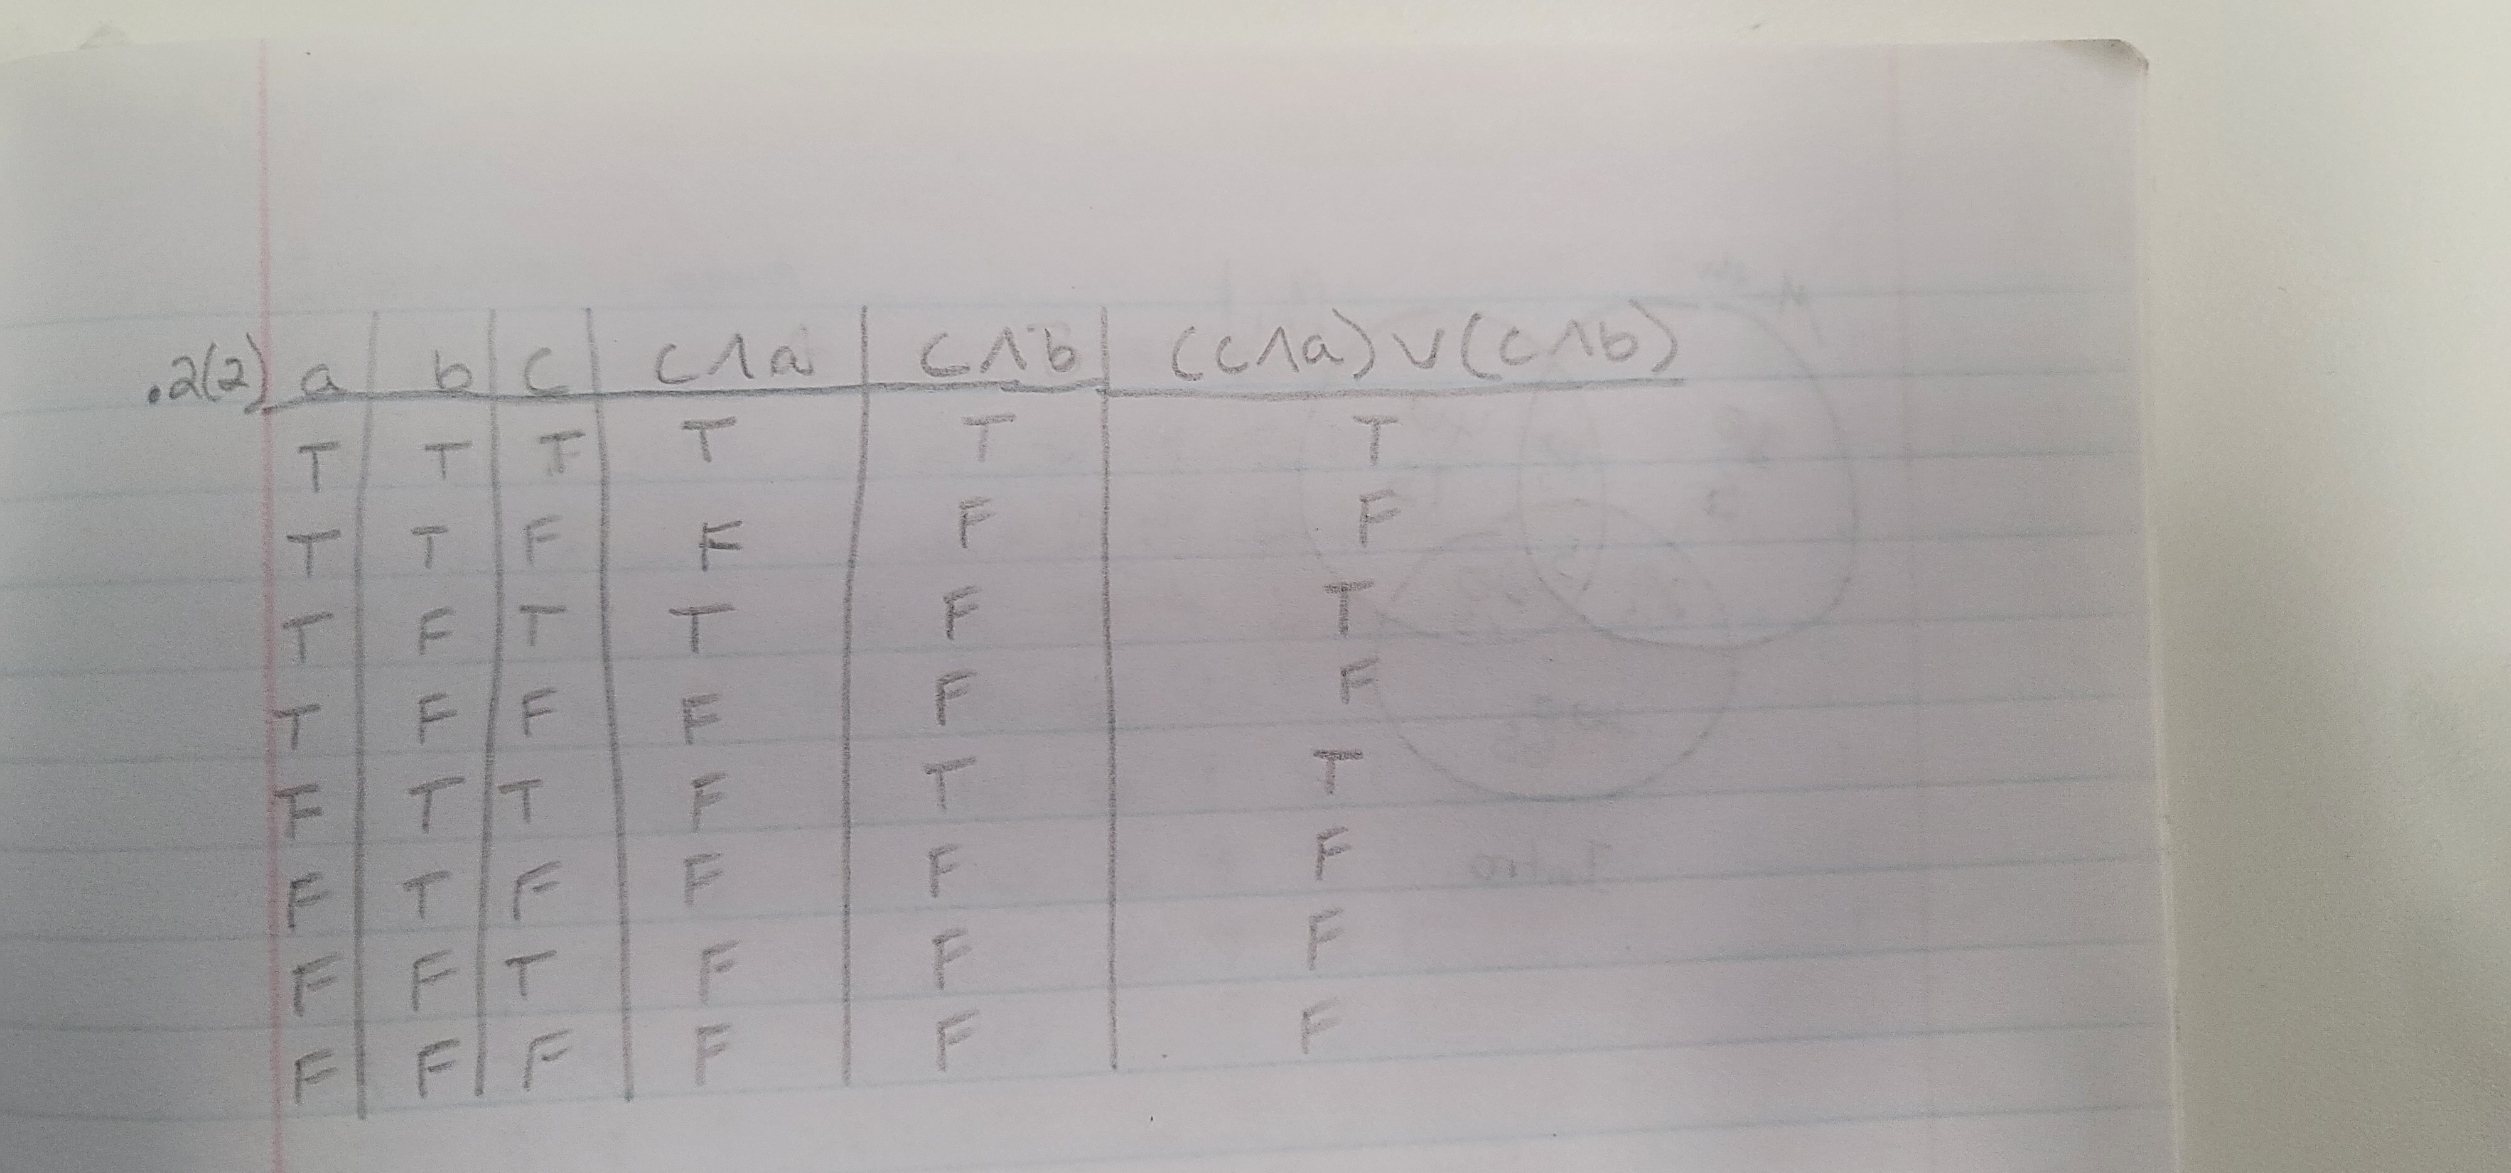 .2(2) a b c c∧a c∧b (c∧a)∨(c∧b)
T T T T T T
T T F F F F
T F T T F T
T F F F F F
F T T F T T
F T F F F F
F F T F F F
F F F F F F